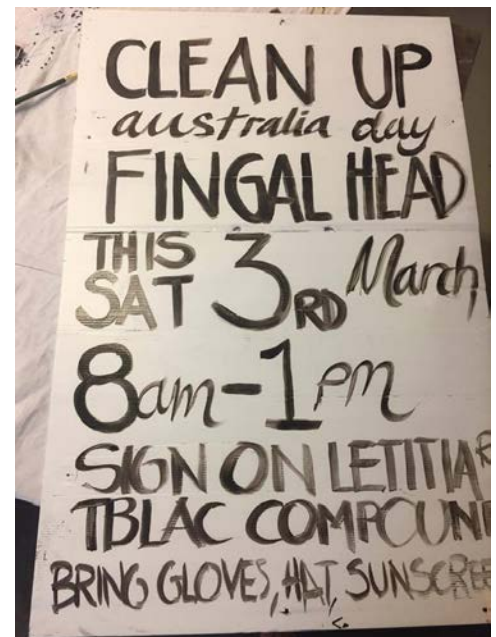 CLEAN UP
australia day
FINGAL HEAD
THIS SAT 3RD March
8am-1pm
SIGN ON LETITIA R
TBLAC COMPOUN
BRING GLOVES, HAT, SUNSCREE